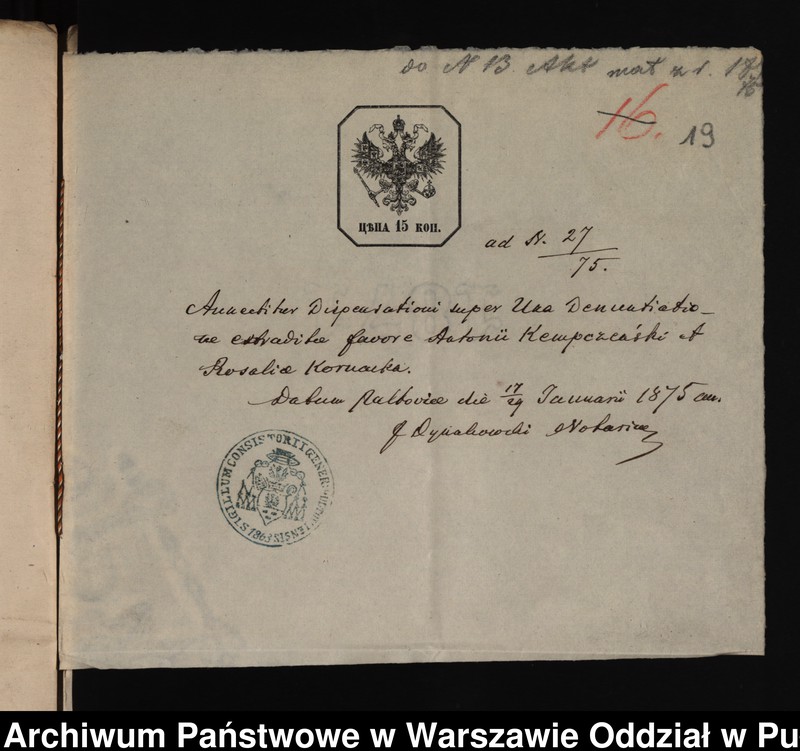 do N 13 Akt mat z r. 18
16.
19
ЦѢНА 15 КОП.
ad N. 27
75.
Annectitur Dispensationi super Una Denuntiatio-
ne extraditæ favore Antonii Kempczeński et
Rosaliæ Kornacka.
Datum Pultoviæ die 17/29 Januarii 1875 an.
Notarius
SIGILLUM CONSISTORII GENER: PULTOVIENSIS 1863
Archiwum Państwowe w Warszawie Oddział w Pu